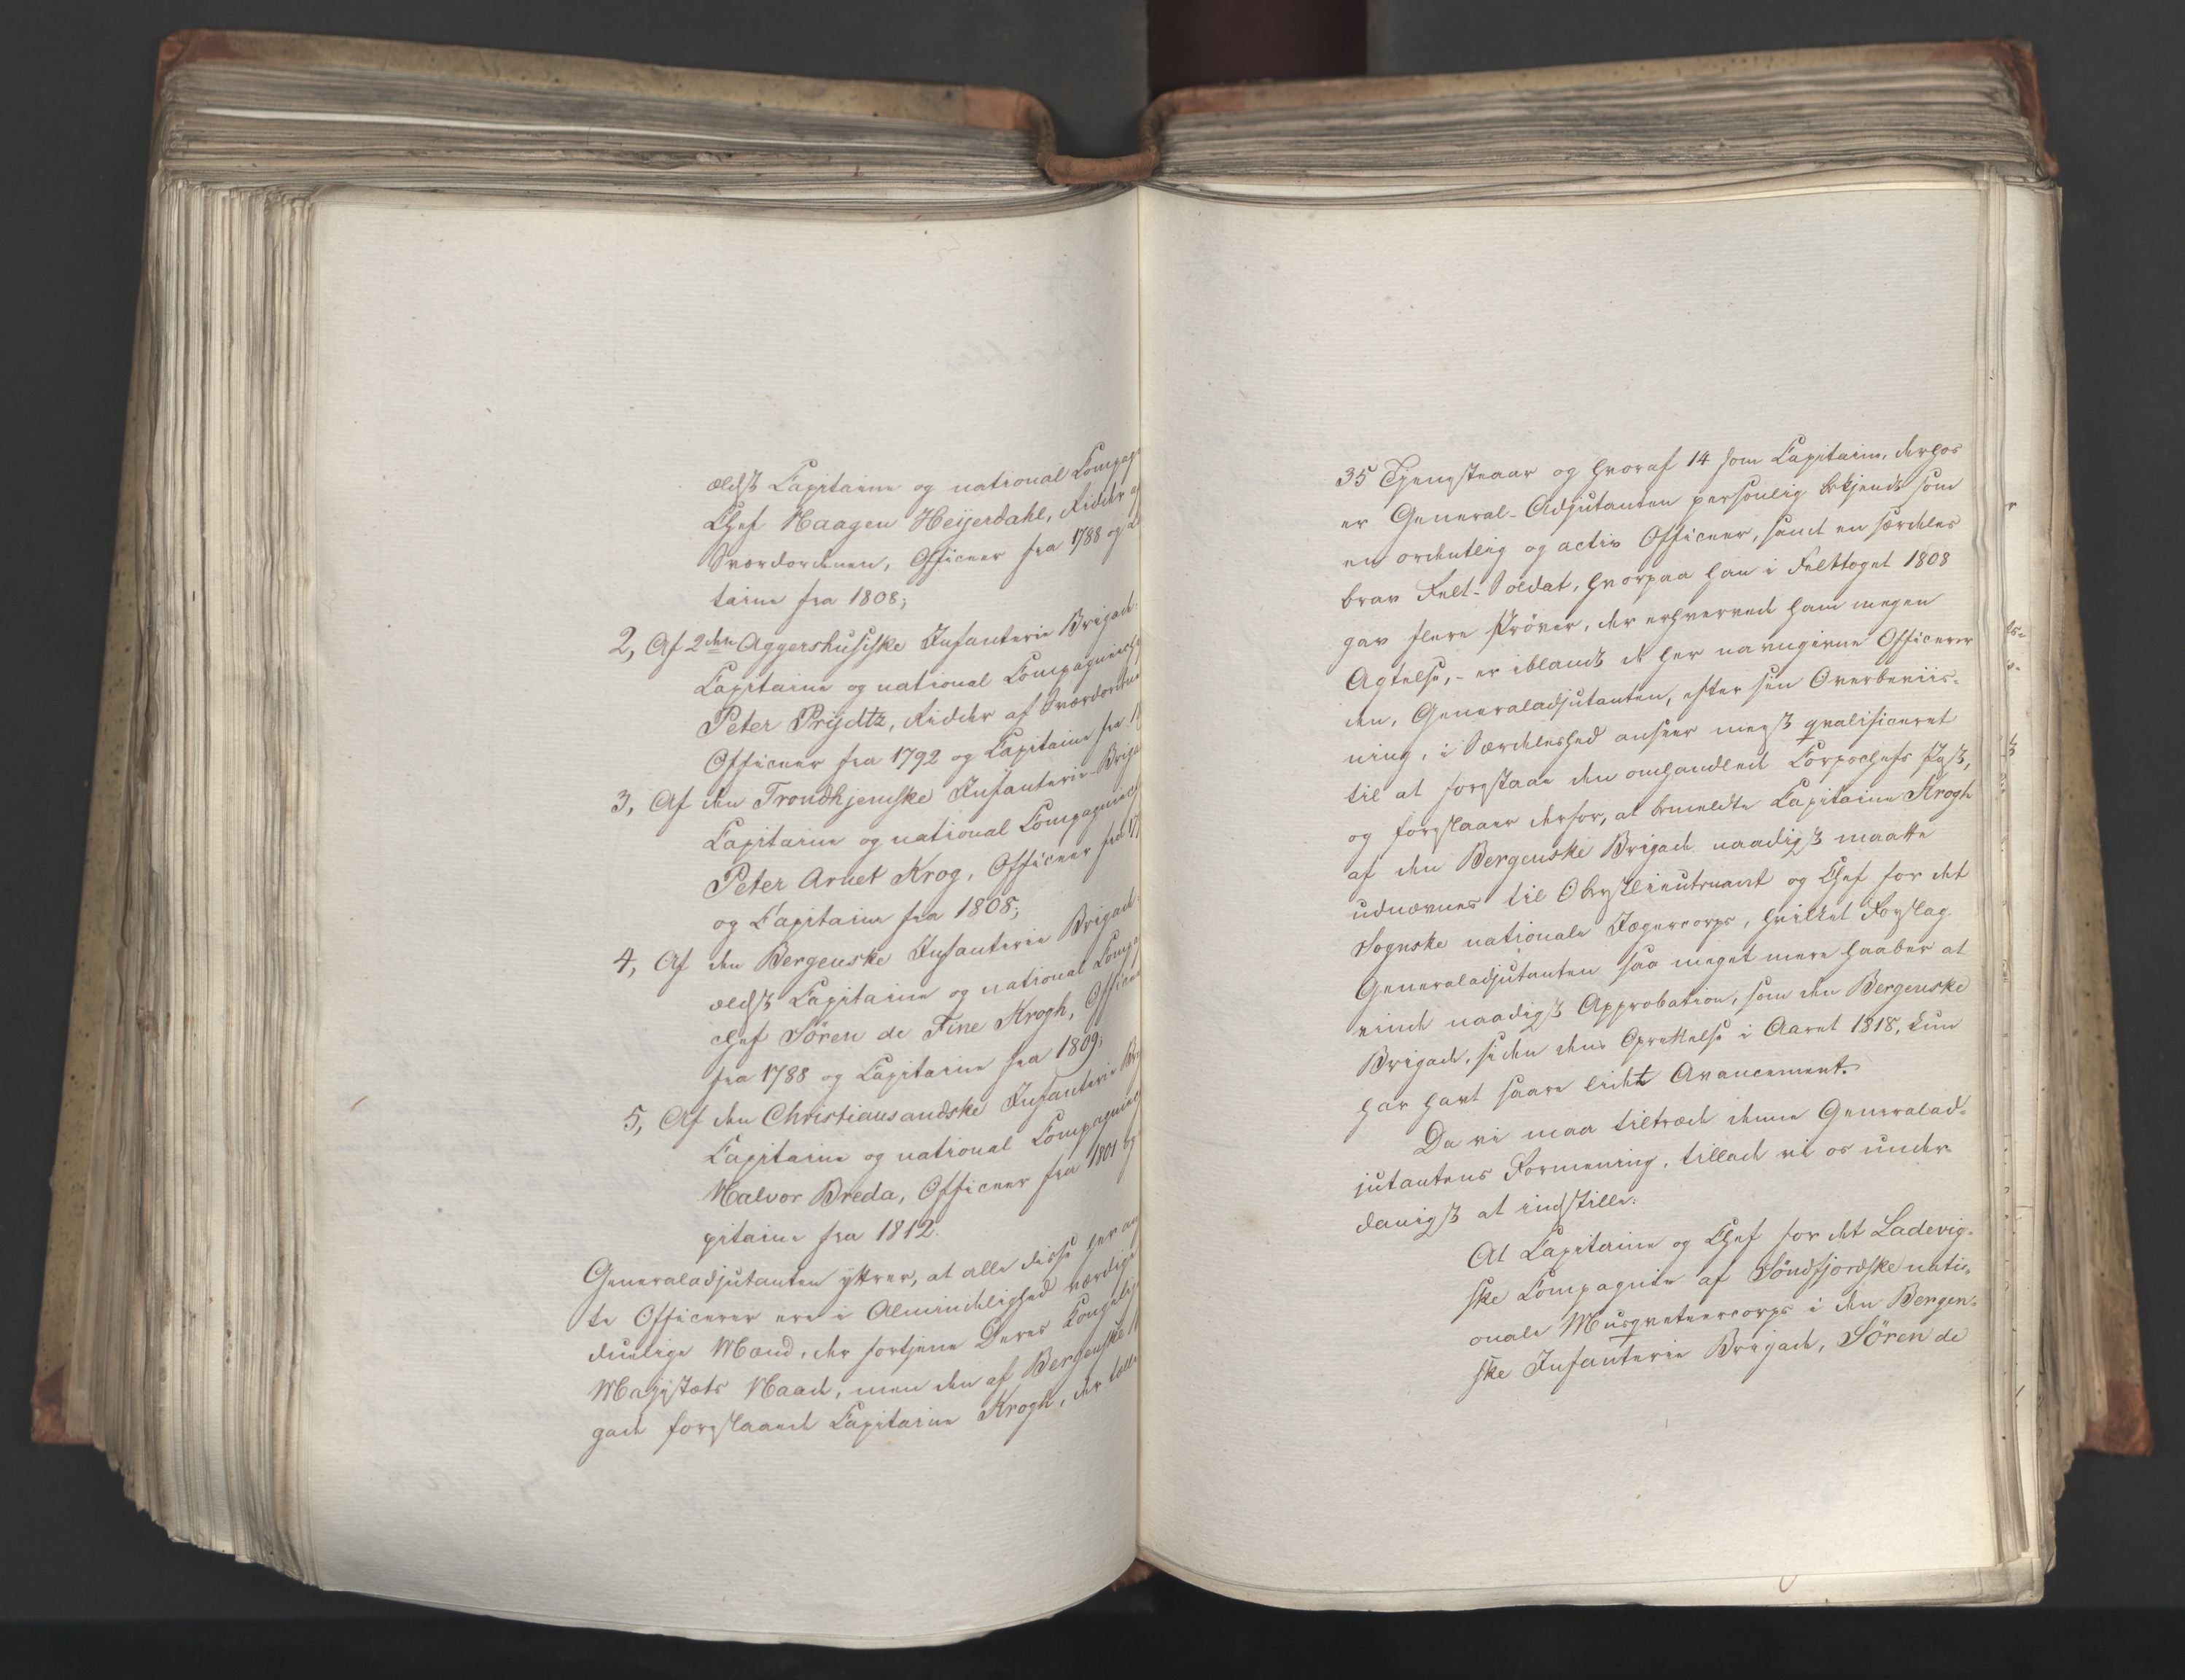 ældst Capitaine og national Compag
Chef Haagen Heyerdahl, Ridder af
Sværdordenen, Officeer fra 1788 og
taine fra 1808;
2, Af 2den Aggershusiske Infanterie Brigade:
Capitaine og national Compagnieche
Peter Prydtz, Ridder af Sværdordene
Officeer fra 1792 og Capitaine fra
3, Af den Trondhjemske Infanterie-Briga
Capitaine og national Compagniec
Peter Arnet Krog, Officeer fra 17
og Capitaine fra 1808;
4, Af den Bergenske Infanterie Brigade
ældst Capitaine og national Compag
chef Sören de Fine Krogh, Officee
fra 1788 og Capitaine fra 1809;
5, Af den Christiansandske Infanterie Br
Capitaine og national Compagnie
Halvor Breda, Officeer fra 1801 og
pitaine fra 1812.
Generaladjutanten yttrer, at alle disse her
te Officerer ere i Almindelighed værdige
duelige Mænd, der fortjene Deres Kongelig
Majestæts Naade, men den af Bergenske
gade foreslaaede Capitaine Krogh, der tælle
35 Tjenesteaar og hvoraf 14 som Capitaine, derhos
er General-Adjutanten personlig bekjendt som
en ordentlig og activ Officeer, samt en særdeles
brav Felt-Soldat, hvorpaa han i Felttoget 1808
gav flere Pröver, der erhvervede ham megen
Agtelse, - er iblandt de her navngivne Officerer
den, Generaladjutanten, efter sin Overbeviis-
ning, i Særdeleshed anseer meest qvalificeret
til at forestaae den omhandlede Corpschefs Post,
og foreslaaer derfor, at bemeldte Capitaine Krogh
af den Bergenske Brigade naadigst maatte
udnævnes til Obrstlieutenant og Chef for det
Sognske nationale Jægercorps, hvilket Forslag
Generaladjutanten saa meget mere haaber at
vinde naadigst Approbation, som den Bergenske
Brigade, siden dens Oprettelse i Aaret 1818, kun
har havt saare lidet Avancement.
Da vi maa tiltræde denne Generalad-
jutantens Formening, tillade vi os under-
danigst at indstille:
At Capitaine og Chef for det Ladevig-
ske Compagnie af Söndfjordske nati-
onale Musqveteercorps i den Bergen-
ske Infanterie Brigade, Sören de